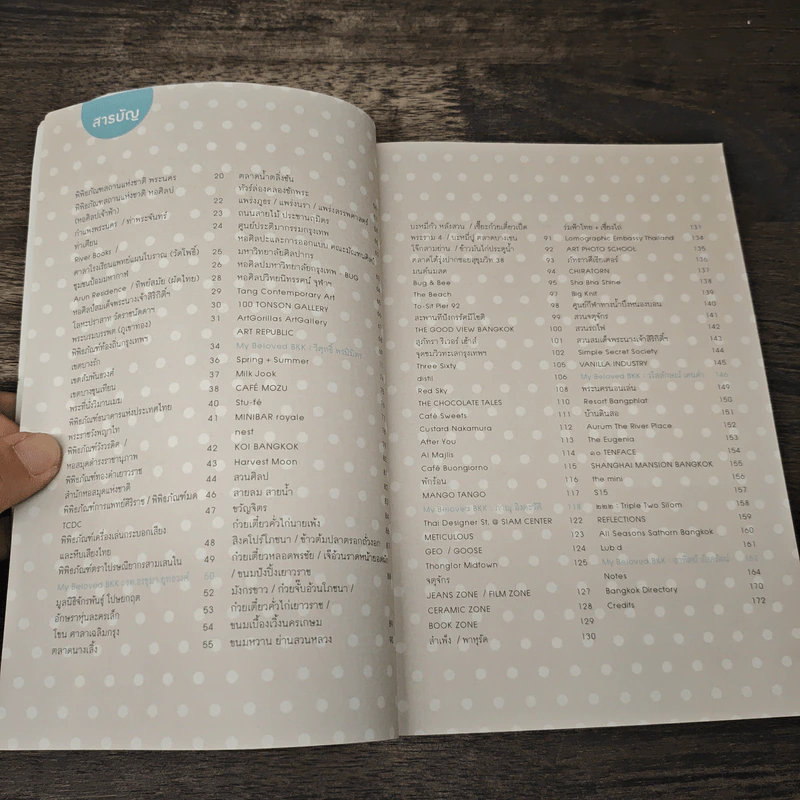 สารบัญ
พิพิธภัณฑสถานแห่งชาติ พระนคร 20
พิพิธภัณฑสถานแห่งชาติ หอศิลป
(หอศิลปเจ้าฟ้า) 22
กำแพงพระนคร / ท่าพระจันทร์ 23
ท่าเตียน 24
River Books /
ศาลาโรงเรียนแพทย์แผนโบราณ (วัดโพธิ์) 25
ชุมชนป้อมมหากาฬ 26
Arun Residence / ทิพย์สมัย (ผัดไทย) 28
หอศิลป์สมเด็จพระนางเจ้าสิริกิติ์ฯ 29
โลหะปราสาท วัดราชนัดดาฯ 30
พระบรมบรรพต (ภูเขาทอง) 31
พิพิธภัณฑ์ท้องถิ่นกรุงเทพฯ
เขตบางรัก 34
เขตสัมพันธวงศ์ 36
เขตบางขุนเทียน 37
พระที่นั่งวิมานเมฆ 38
พิพิธภัณฑ์ธนาคารแห่งประเทศไทย 40
พระราชวังพญาไท 41
พิพิธภัณฑ์วังวรดิศ /
หอสมุดดำรงราชานุภาพ 42
พิพิธภัณฑ์ทองคำเยาวราช 43
สำนักหอสมุดแห่งชาติ 44
พิพิธภัณฑ์การแพทย์ศิริราช / พิพิธภัณฑ์มด 46
TCDC 47
พิพิธภัณฑ์เครื่องเล่นกระบอกเสียง
และหีบเสียงไทย 48
พิพิธภัณฑ์ตราไปรษณียากรสามเสนใน 49
My Beloved BKK 50
มูลนิธิจักรพันธุ์ โปษยกฤต 52
อักษราหุ่นละครเล็ก 53
โขน ศาลาเฉลิมกรุง 54
ตลาดนางเลิ้ง 55
ตลาดน้ำตลิ่งชัน
ทัวร์ล่องคลองชักพระ
แพร่งภูธร / แพร่งนรา / แพร่งสรรพศาสตร์
ถนนสายไม้ ประชานฤมิตร
ศูนย์ประติมากรรมกรุงเทพ
หอศิลปะและการออกแบบ คณะมัณฑนศิลป์
มหาวิทยาลัยศิลปากร
หอศิลปมหาวิทยาลัยกรุงเทพ - BUG
หอศิลปวิทยนิทรรศน์ จุฬาฯ
Tang Contemporary Art
100 TONSON GALLERY
ArtGorillas ArtGallery
ART REPUBLIC
My Beloved BKK : วิศุทธิ์ พรนิมิตร
Spring + Summer
Milk Jook
CAFÉ MOZU
Stu-fé
MINIBAR royale
nest
KOI BANGKOK
Harvest Moon
สวนศิลป์
สายลม สายน้ำ
ขวัญจิตร
ก๋วยเตี๋ยวคั่วไก่นายเพ้ง
ลิงคโปร์โภชนา / ข้าวต้มปลาตรอกถั่วงอก
ก๋วยเตี๋ยวหลอดพรชัย /
/ ขนมปังปิ้งเยาวราช
มังกรขาว / ก๋วยจั๊บอ้วนโภชนา /
ก๋วยเตี๋ยวคั่วไก่เยาวราช /
ขนมเบื้องเวิ้งนครเกษม
ขนมหวาน ย่านสวนหลวง
บะหมี่กัว หลังสวน / เซี้ยะก๋วยเตี๋ยวเป็ด
พระราม 4 / บะหมี่ปู ตลาดบางเขน 91
โจ๊กสามย่าน / ข้าวมันไก่ประตูน้ำ 92
ตลาดโต้รุ่งปากซอยสุขุมวิท 38 93
มนต์นมสด 94
Bug & Bee 95
The Beach 97
To-Sit Pier 92 98
ละพานทีปังกรรัศมีโชติ 99
THE GOOD VIEW BANGKOK 100
สุภัทรา ริเวอร์ เฮ้าส์ 101
จุดชมวิวทะเลกรุงเทพฯ 102
Three Sixty 105
distil 106
Red Sky 108
THE CHOCOLATE TALES 110
Café Sweets 111
Custard Nakamura 112
After You 113
Al Majlis 114
Café Buongiorno 115
พักร้อน 116
MANGO TANGO 117
My Beloved BKK 118
Thai Designer St. @ SIAM CENTER 122
METICULOUS 123
GEO / GOOSE 124
Thonglor Midtown 125
จตุจักร
JEANS ZONE / FILM ZONE 127
CERAMIC ZONE 128
BOOK ZONE 129
สำเพ็ง / พาหุรัด 130
ร่มฟ้าไทย + เซี่ยงไถ่ 131
Lomographic Embassy Thailand 134
ART PHOTO SCHOOL 135
ภัทราวดีเธียเตอร์ 136
CHIRATORN 137
Sha Bna Shine 138
Big Knit 139
ศูนย์กีฬาทางน้ำบึงหนองบอน 140
สวนจตุจักร 141
สวนรถไฟ 142
สวนสมเด็จพระนางเจ้าสิริกิติ์ฯ 143
Simple Secret Society 144
VANILLA INDUSTRY 145
My Beloved BKK 146
พระนครนอนเล่น 149
Resort Bangphlat 150
บ้านดินสอ 151
Aurum The River Place 152
The Eugenia 153
๑๐ TENFACE 154
SHANGHAI MANSION BANGKOK 155
the mini 156
S15 157
ออออ : Triple Two Silom 158
REFLECTIONS 159
All Seasons Sathorn Bangkok 160
Lub d 161
My Beloved BKK 163
Notes 164
Bangkok Directory 170
Credits 172